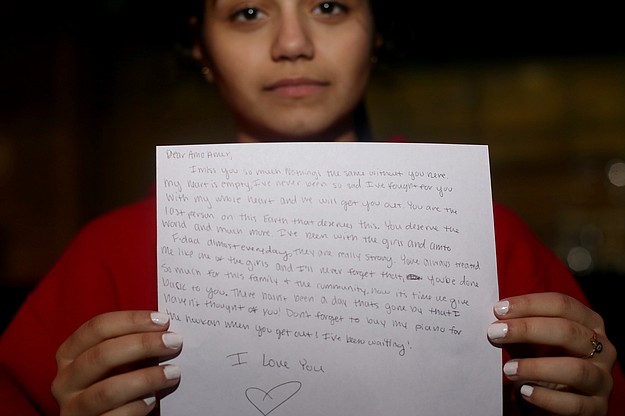 Dear Amo Amer,
I miss you so much. Nothings the same without you here.
My heart is empty, I've never been so sad I've fought for you
with my whole heart and we will get you out. You are the
last person on this Earth that deserves this. You deserve the
world and much more. I've been with the girls and amto
Fidaa almost everyday, they are really strong. You've always treated
me like one of the girls and I'll never forget that, you've done
so much for this family & the community, now it's time we give
back to you. There hasn't been a day thats gone by that I
haven't thought of you! Don't forget to buy me piano for
the hookah when you get out! I've been waiting!
I Love You